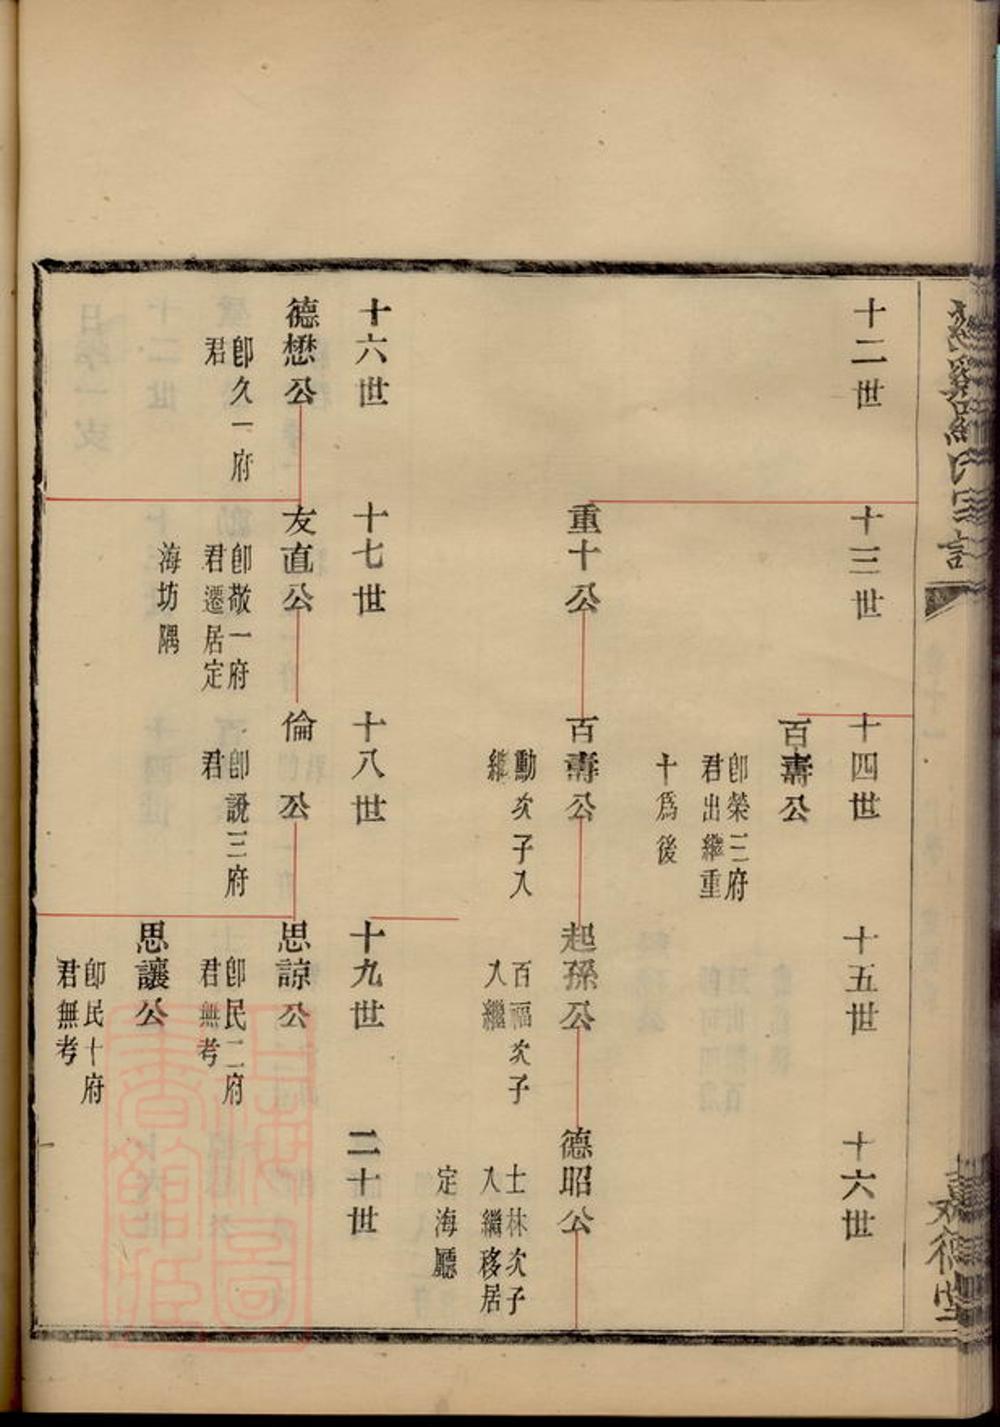 十二世
十三世
十四世
十五世
十六世
百壽公
即榮三府
君出繼重
十爲後
重十公
百壽公
勳次子入
繼
起孫公
百福次子
入繼
德昭公
士林次子
入繼移居
定海廳
十六世
十七世
十八世
十九世
二十世
德懋公
即久一府
君
友直公
即敬一府
君遷居定
海坊隅
倫公
即說三府
君
思諒公
即民二府
君無考
思讓公
即民十府
君無考
上海圖
書館藏